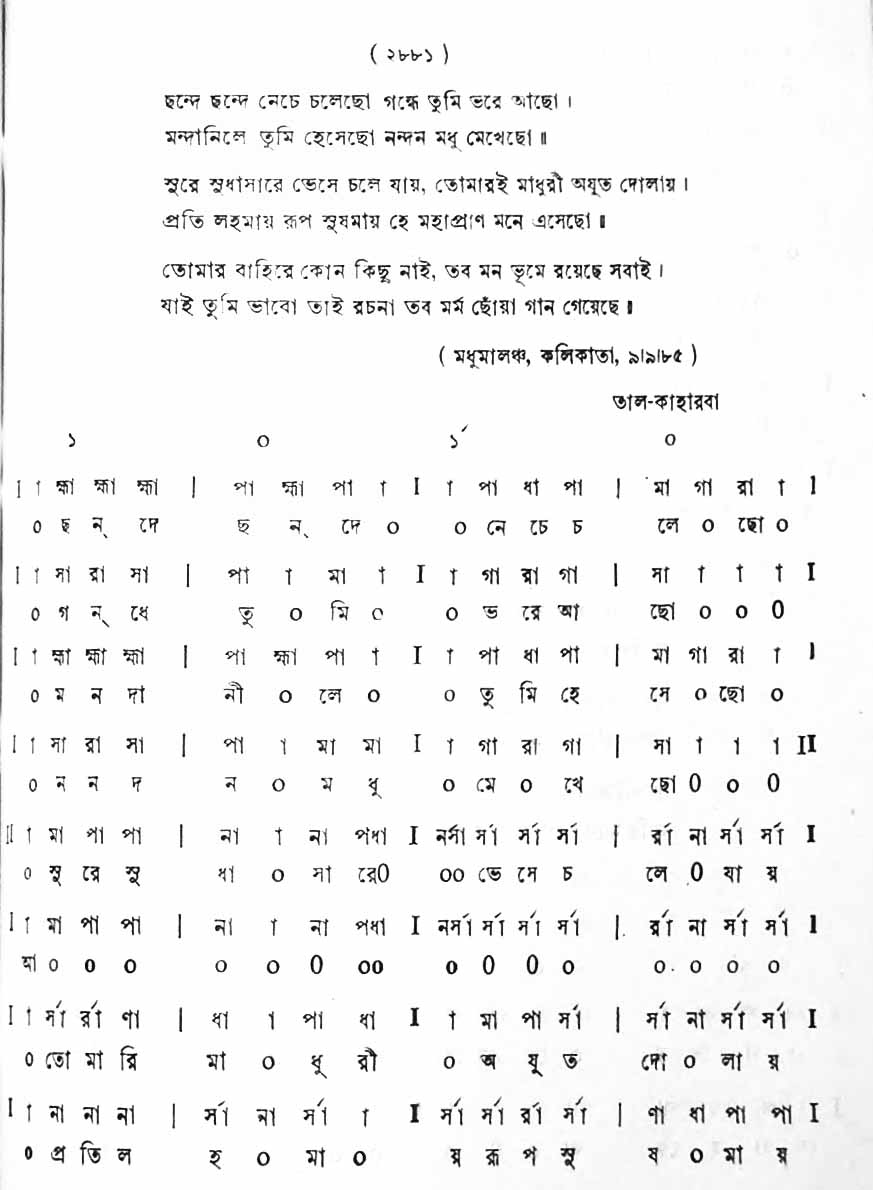 ( ২৮৮১ )
ছন্দে ছন্দে নেচে চলেছো গন্ধে তুমি ভরে আছো ।
মন্দানিলে তুমি হেসেছো নন্দন মধু মেখেছো ॥
সুরে সুধাসারে ভেসে চলে যায়, তোমারই মাধুরী অযূত দোলায় ।
প্রতি লহমায় রূপ সুষমায় হে মহাপ্রাণ মনে এসেছো ॥
তোমার বাহিরে কোন কিছু নাই, তব মন ভূমে রয়েছে সবাই ।
যাই তুমি ভাবো তাই রচনা তব মর্ম ছোঁয়া গান গেয়েছে ॥
( মধুমালঞ্চ, কলিকাতা, ৯।৯।৮৫ )
তাল-কাহারবা
১ ০ ১´ ০
I া হ্মা হ্মা হ্মা | পা হ্মা পা া I া পা ধা পা | মা গা রা া I
০ ছ ন্ দে ছ ন্ দে ০ ০ নে চে চ লে ০ ছো ০
I া সা রা সা | পা া মা া I া গা রা গা | সা া া া I
০ গ ন্ ধে তু ০ মি ০ ০ ভ রে আ ছো ০ ০ ০
I া হ্মা হ্মা হ্মা | পা হ্মা পা া I া পা ধা পা | মা গা রা া I
০ ম ন দা নী ০ লে ০ ০ তু মি হে সে ০ ছো ০
I া সা রা সা | পা া মা মা I া গা রা গা | সা া া া II
০ ন ন দ ন ০ ম ধু ০ মে ০ খে ছো ০ ০ ০
II া মা পা পা | না া না পধা I নর্সা র্সা র্সা র্সা | র্রা না র্সা র্সা I
০ সু রে সু ধা ০ সা রে০ ০০ ভে সে চ লে ০ যা য়
I া মা পা পা | না া না পধা I নর্সা র্সা র্সা র্সা | র্রা না র্সা র্সা I
আ ০ ০ ০ ০ ০ ০ ০০ ০ ০ ০ ০ ০ ০ ০ ০
I া র্সা র্রা ণা | ধা া পা ধা I া মা পা র্সা | র্সা না র্সা র্সা I
০ তো মা রি মা ০ ধু রী ০ অ যূ ত দো ০ লা য়
I া না না না | র্সা না র্সা া I র্সা র্সা র্রা র্সা | ণা ধা পা পা I
০ প্র তি ল হ ০ মা ০ য় রূ প সু ষ ০ মা য়